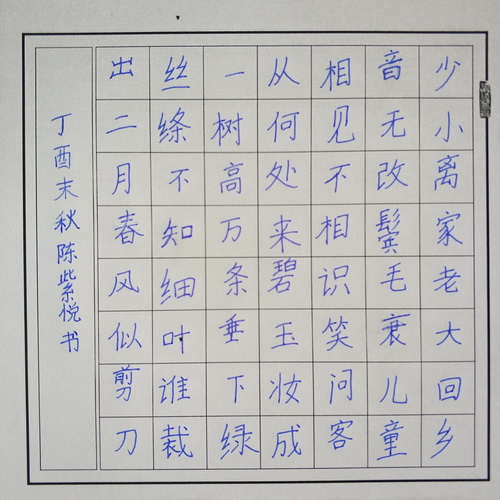 少小离家老大回乡
音无改鬓毛衰儿童
相见不相识笑问客
从何处来碧玉妆成
一树高万条垂下绿
丝绦不知细叶谁裁
出二月春风似剪刀
丁酉末秋陈紫悦书